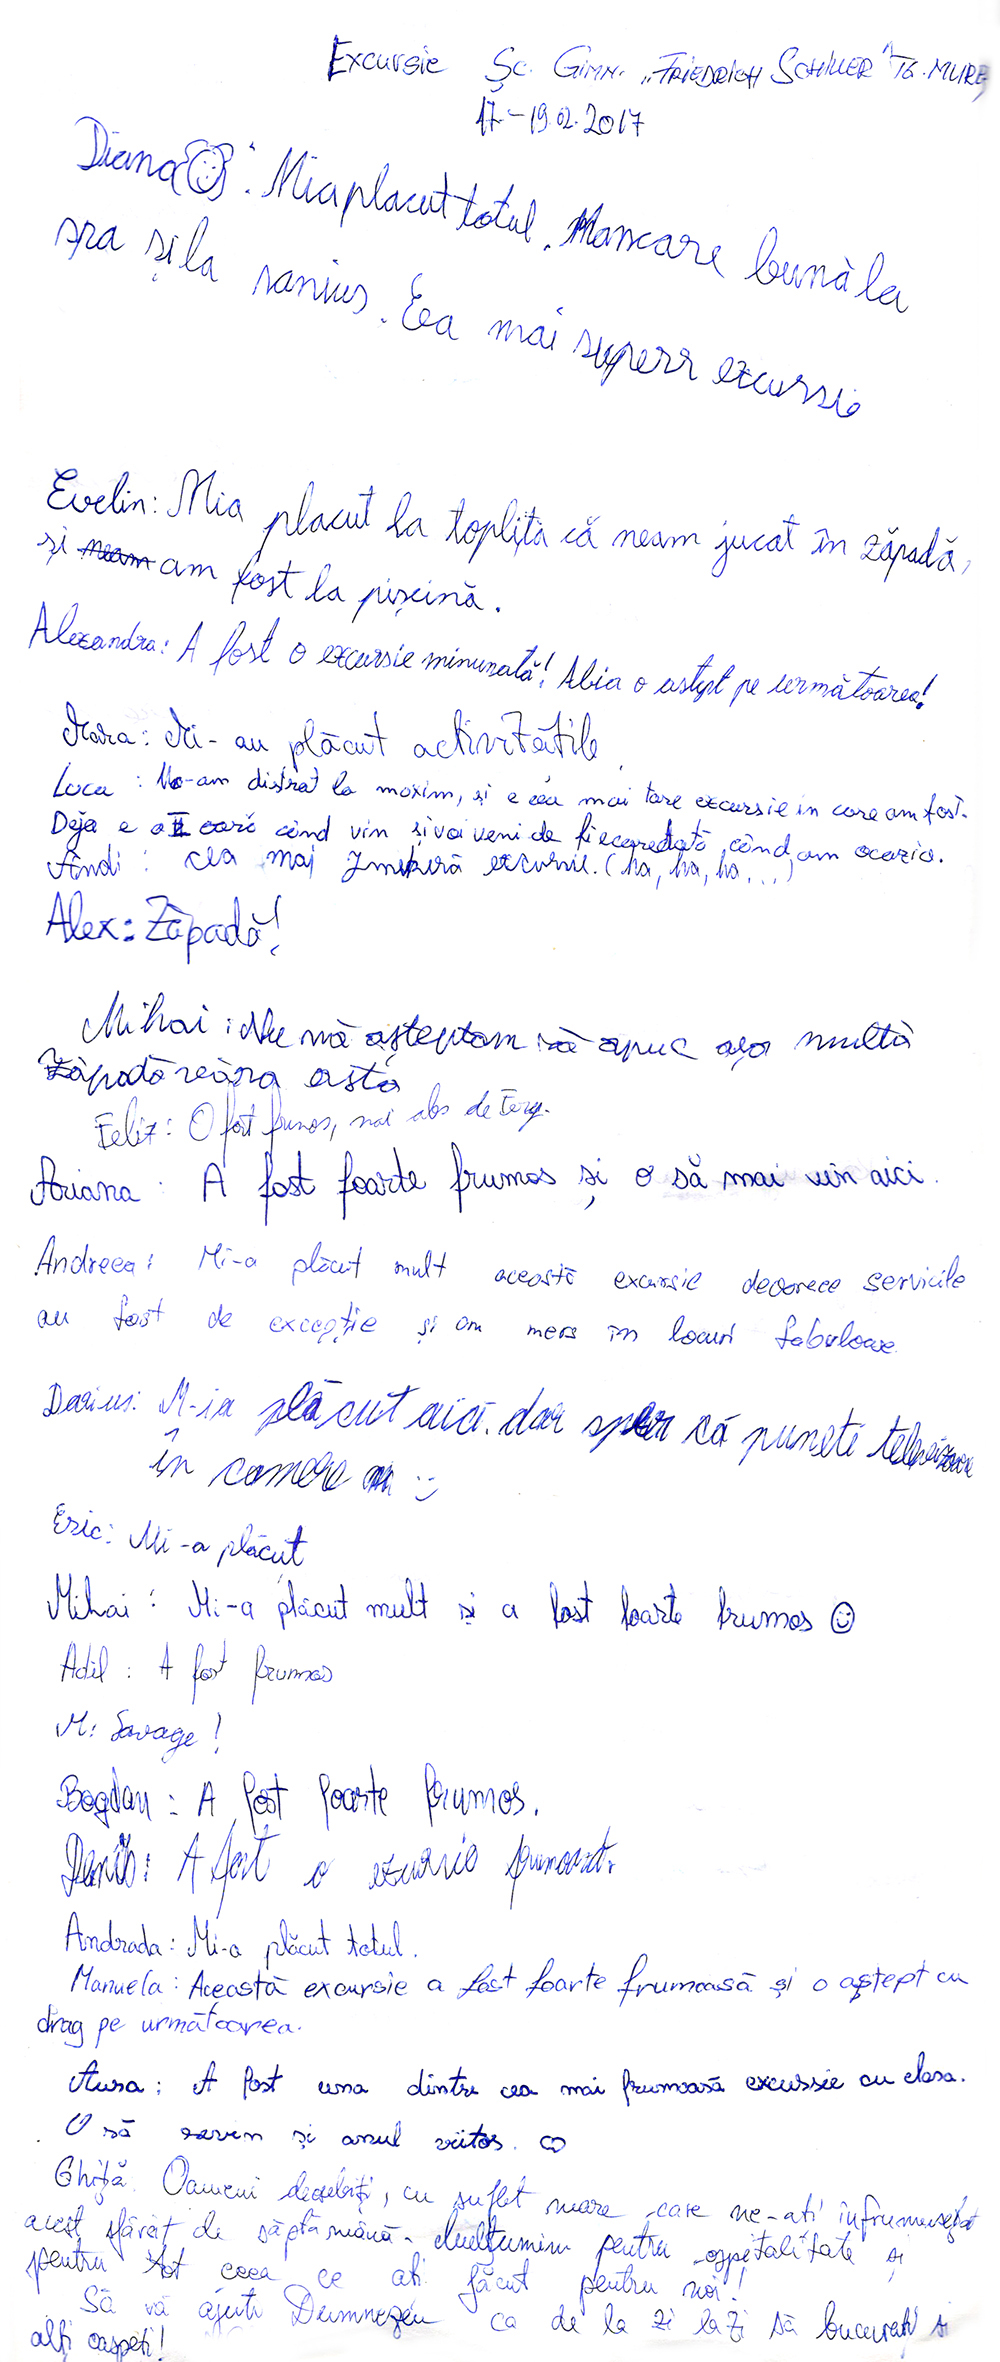 Excursie Șc. Gimn. „FRIEDRICH SCHILLER" TG. MUREȘ
17-19.02.2017
Diana: Mia placut totul. Mancare bună la
spa și la sanius. Cea mai superr excursie
Evelin: Mia placut la toplița că neam jucat în zăpadă,
și neam am fost la pișcină.
Alexandra: A fost o excursie minunată! Abia o astept pe următoarea!
Mara: Mi-au plăcut activitățile
Luca: M-am distrat la maxim, și e cea mai tare excursie în care am fost.
Deja e a II oară când vin și voi veni de fiecaredată când am ocazia.
Andi: cea mai excursie. (ha, ha, ha...)
Alex: Zăpadă!
Mihai: Nu mă așteptam să apuc așa multă
zăpadă asta
Felix: O fost frumos,
Ariana: A fost foarte frumos și o să mai vin aici.
Andreea: Mi-a plăcut mult această excursie deoarece serviciile
au fost de excepție și am mers în locuri fabuloase
Darius: M-ia plăcut aici. dar sper că puneti televizoare
în camere :)
Eric: Mi-a plăcut
Mihai: Mi-a plăcut mult și a fost foarte frumos ☺
Adil: A fost frumos
M: Savage!
Bogdan: A fost foarte frumos.
Denis: A fost o excursie frumoasă.
Andrada: Mi-a plăcut totul.
Manuela: Această excursie a fost foarte frumoasă și o aștept cu
drag pe următoarea.
Aura: A fost una dintre cea mai frumoasă excursie cu clasa.
O să revin și anul viitor.
Ghiță. Oameni deosebiți, cu suflet mare care ne-ati înfrumusețat
acest sfârșit de săptămână. Mulțumim pentru ospitalitate și
pentru tot ceea ce ati făcut pentru noi!
Să vă ajute Dumnezeu ca de la zi la zi să bucurați și
alți oaspeți!